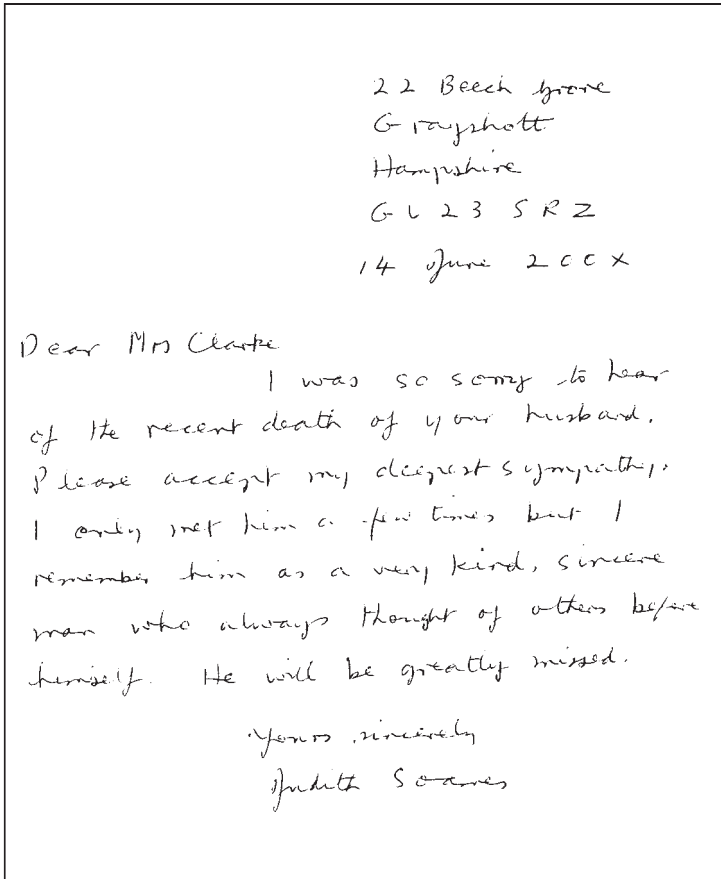 22 Beech Grove
Grayshott
Hampshire
GL23 5RZ
14 June 200X
Dear Mrs Clarke
I was so sorry to hear
of the recent death of your husband.
Please accept my deepest sympathy.
I only met him a few times but I
remember him as a very kind, sincere
man who always thought of others before
himself. He will be greatly missed.
Yours sincerely
Judith Soames